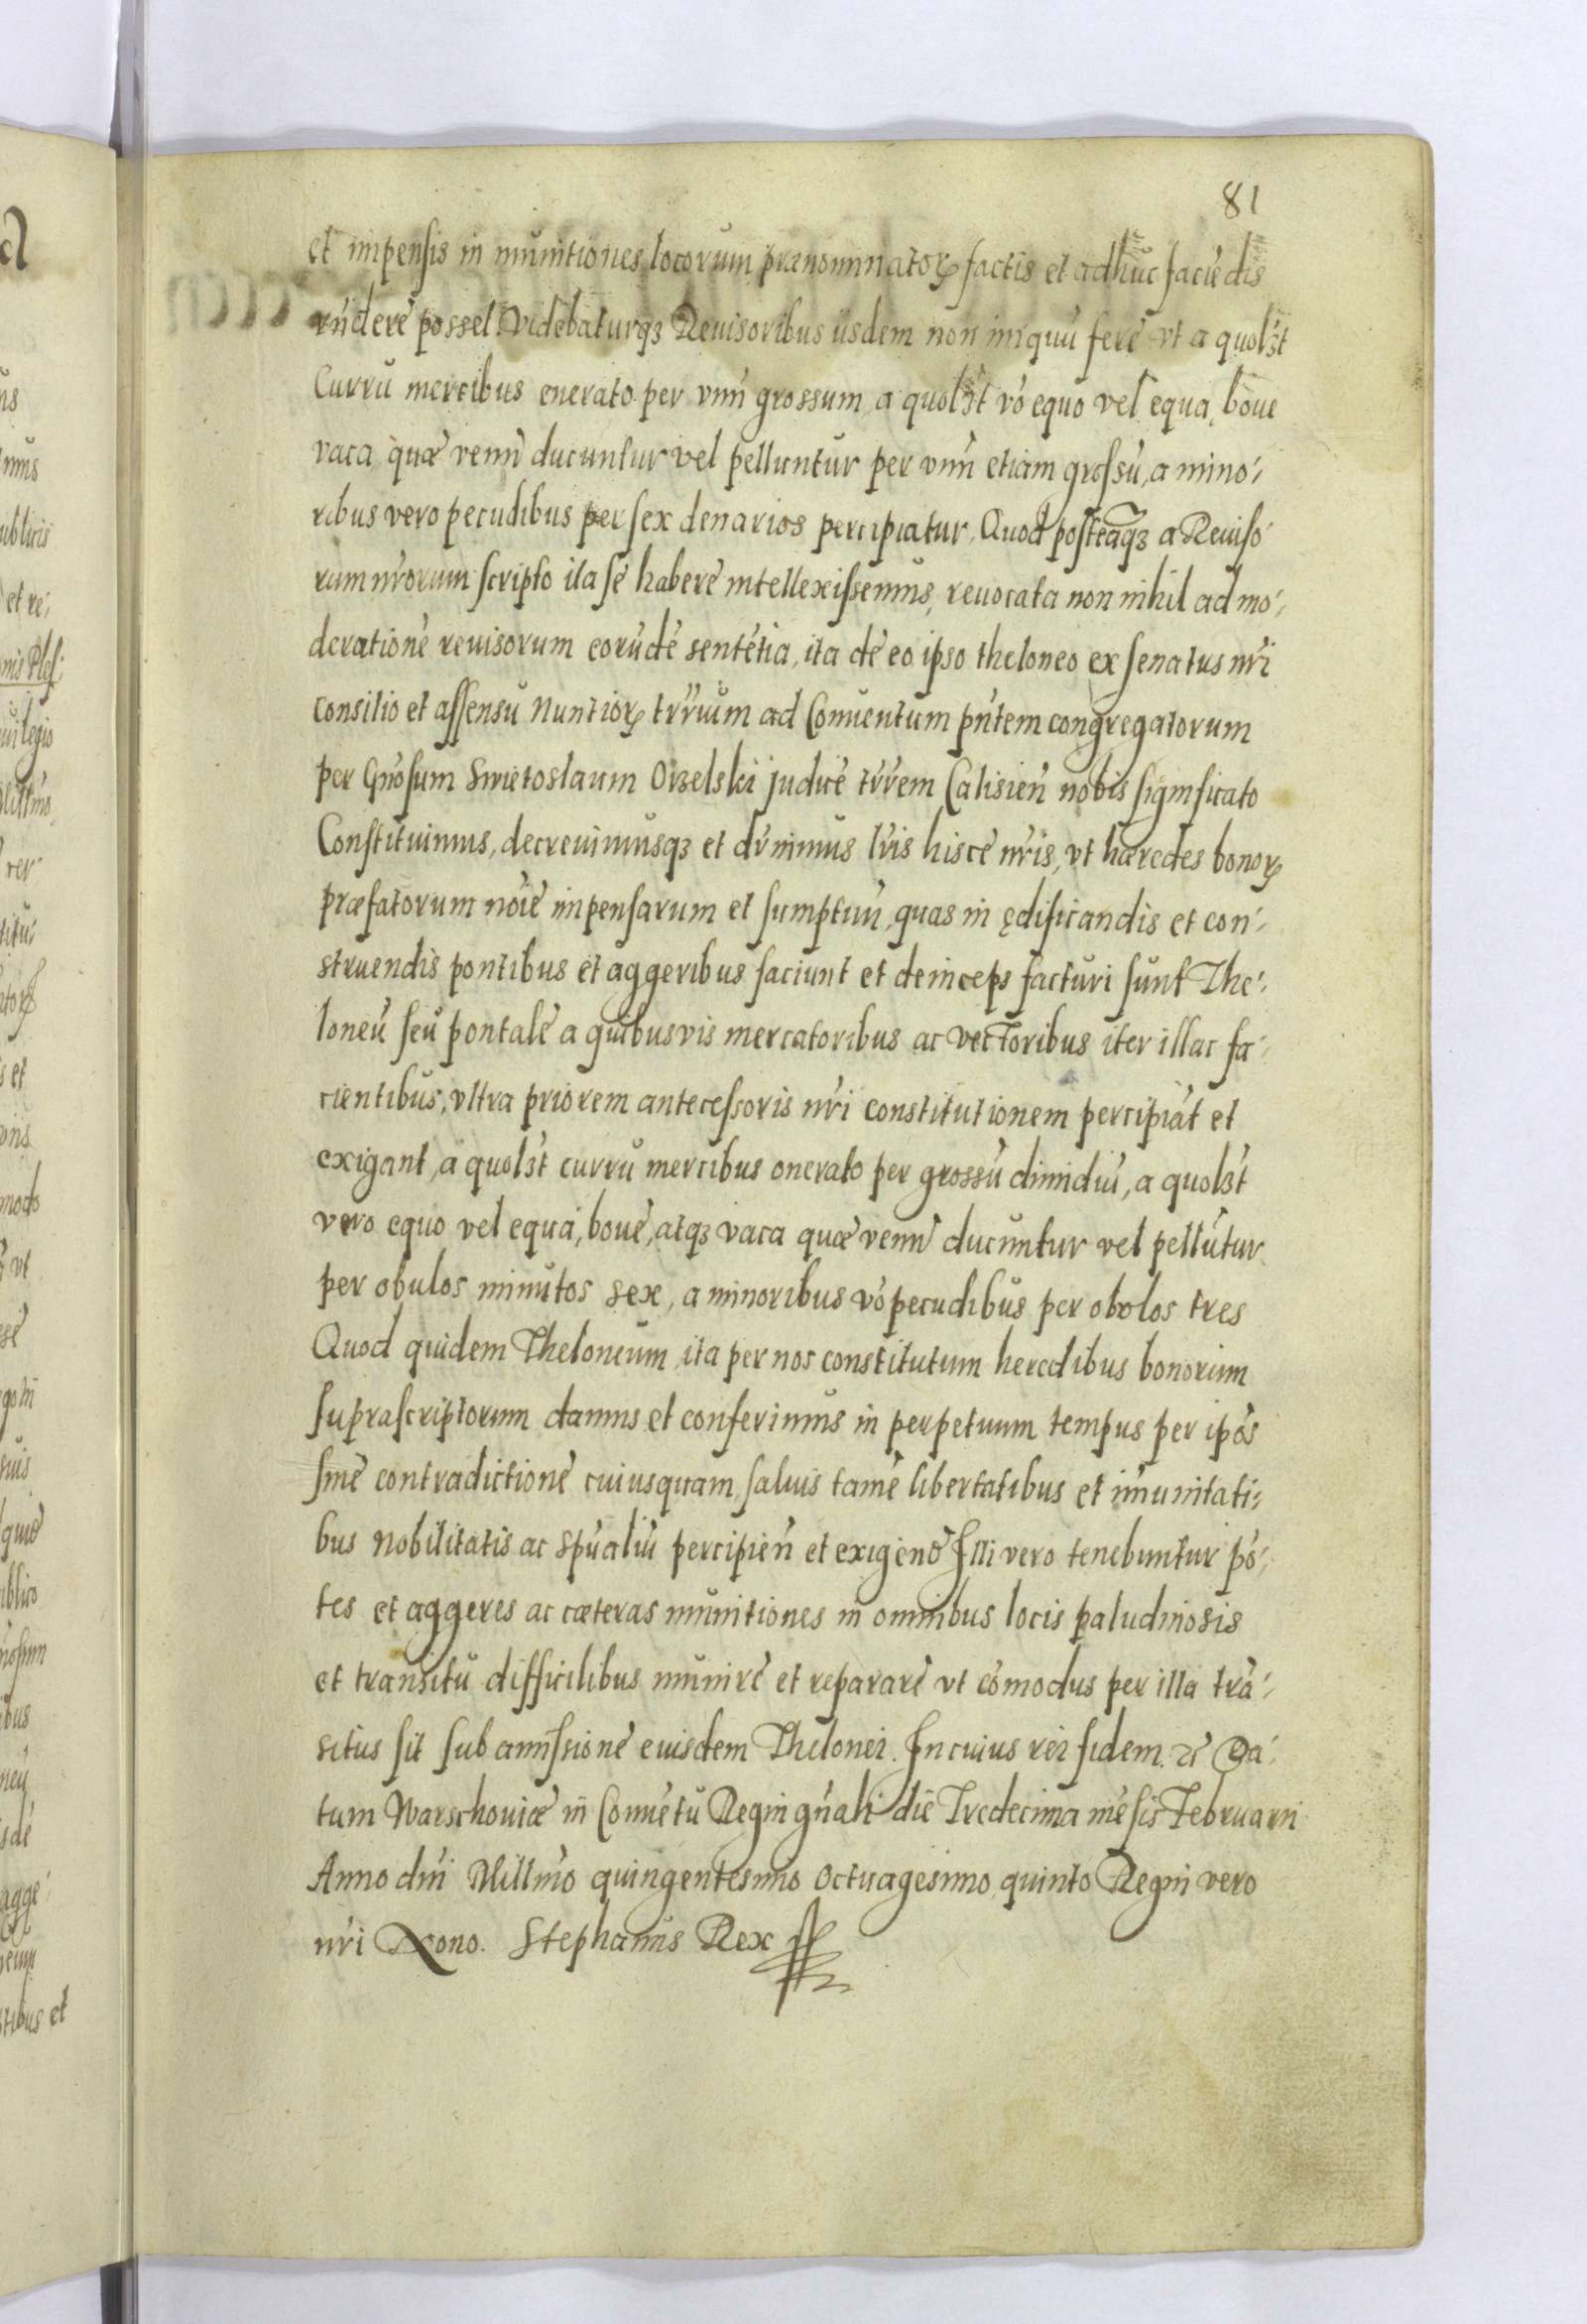 81
et impensis in munitiones locorum prænominatorꝝ factis et adhuc faciẽdis
rñdere posset. Videbaturqꝫ Reuisoribus iisdem non iniquũ fere vt a quolꝫt
Curru mercibus onerato per vnũ grossum, a quolꝫt vo equo vel equa, boue
vaca, quæ venũ ducuntur vel pelluntur per vnũ etiam grossũ, a mino-
ribus vero pecudibus per sex denarios percipiatur. Quod posteaqꝫ a Reuiso-
rum nr̃orum scripto ita se habere intellexissemus, reuocata non nihil ad mo-
derationẽ reuisorum eorũdẽ sentẽtia, ita de eo ipso theloneo ex senatus nr̃i
consilio et assensu Nuntiorꝝ trr̃ium ad Conuentum pñtem congregatorum
per Gñosum Swietoslaum Orzelski judicẽ trr̃em Calisieñ nobis significato
Constituimus, decreuimusqꝫ et dr̃nimus lr̃is hisce nr̃is, vt hæredes bonorꝝ
præfatorum noĩe impensarum et sumptuũ, quas in ędificandis et con-
struendis pontibus et aggeribus faciunt et deinceps facturi sunt The-
loneũ seu pontale a quibusvis mercatoribus ac vectoribus iter illac fa-
cientibus, vltra priorem antecessoris nr̃i constitutionem percipiãt et
exigant, a quolꝫt curru mercibus onerato per grossũ dimidiũ, a quolꝫt
vero equo vel equa, boue, atqꝫ vaca quæ venũ ducuntur vel pellũtur
per obulos minutos sex, a minoribus vo pecudibus per obolos tres
Quod quidem Theloneum, ita per nos constitutum heredibus bonorum
suprascriptorum damus et conferimus in perpetuum tempus per ipõs
sine contradictione cuiusquam, saluis tamẽ libertatibus et imũnitati-
bus nobilitatis ac spũaliũ percipieñ et exigend Illi vero tenebuntur põ-
tes et aggeres ac cæteras munitiones in omnibus locis paludinosis
et transitu difficilibus munire et reparare vt cõmodus per illa trã-
situs sit sub amissione euisdem Thelonei. In cuius rei fidem ꝛc̃ Da-
tum Warschouiæ in Conuẽtu Regni gñali die Tredecima mẽsis Februarii
Anno dni Millmo quingentesimo octuagesimo quinto Regni vero
nr̃i Nono. Stephanus Rex